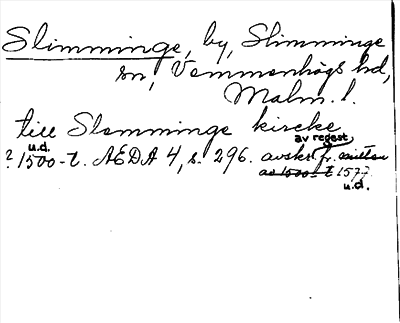 Slimminge, by, Slimminge
sn, Vemmenhögs hd,
Malm. l.
till Slemminge kircke
av regest,
u.d.
? 1500-t. AEDA 4, s. 296. avskr. fr. mitten
av 1500-t 1577.
u.d.